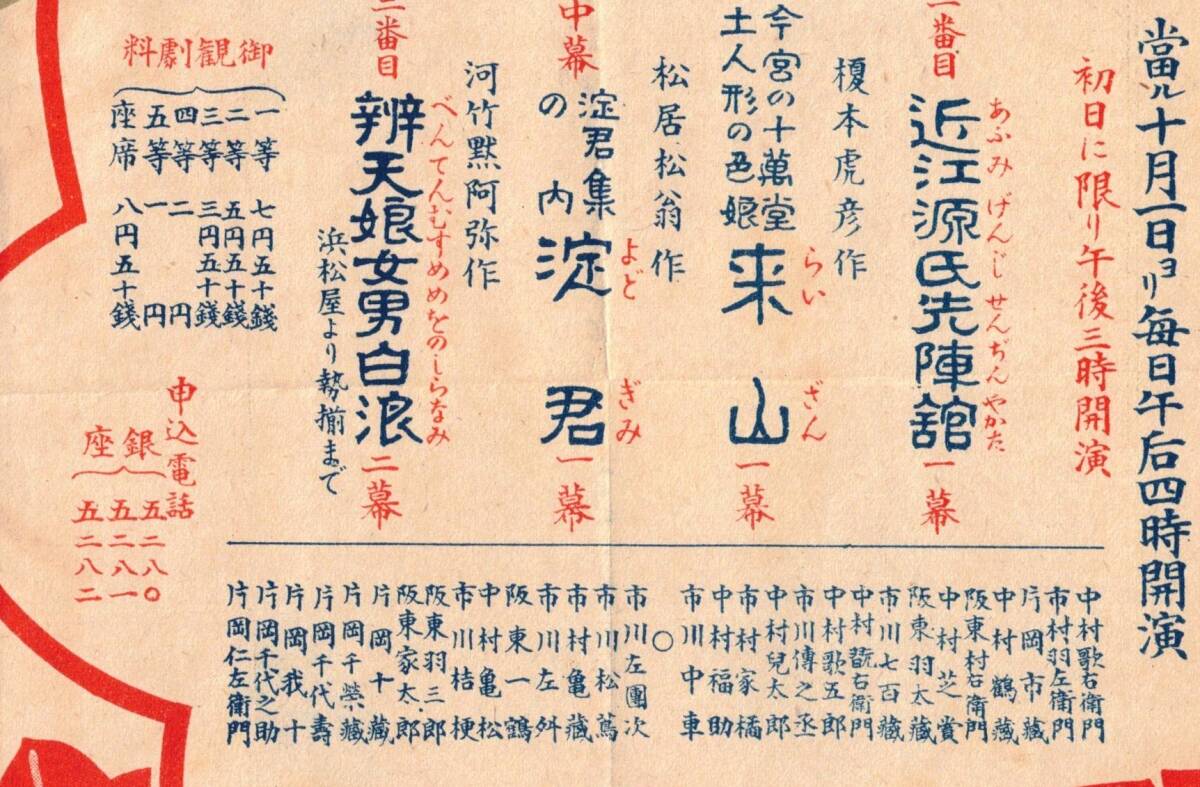 當ル十月一日ヨリ毎日午后四時開演
初日に限り午後三時開演
あふみげんじせんぢんやかた
一番目 近江源氏先陣館 一幕
榎本虎彦作
今宮の十萬堂
土人形の色娘
らいざん
来山 一幕
松居松翁作
中幕
淀君集
の内
よどぎみ
淀君 一幕
河竹黙阿弥作
べんてんむすめめをのしらなみ
二番目 辨天娘女男白浪 二幕
浜松屋より勢揃まで
中村歌右衛門
市村羽左衛門
片岡市蔵
中村鶴蔵
阪東村右衛門
中村芝賞
阪東羽太蔵
市川七百蔵
中村翫右衛門
中村歌五郎
市川傳之丞
中村兒太郎
市村家橘
中村福助
市川中車
〇
市川左團次
市川松蔦
市村亀蔵
市川左舛
阪東一鶴
中村亀松
市川桔梗
阪東羽三郎
阪東家太郎
片岡十蔵
片岡千榮蔵
片岡千代壽
片岡我十
片岡千代之助
片岡仁左衛門
御観劇料
一等 七円五十錢
二等 五円五十錢
三等 三円五十錢
四等 二円
五等 一円
座席 八円五十錢
申込電話
銀座
五二八〇
五二八一
五二八二